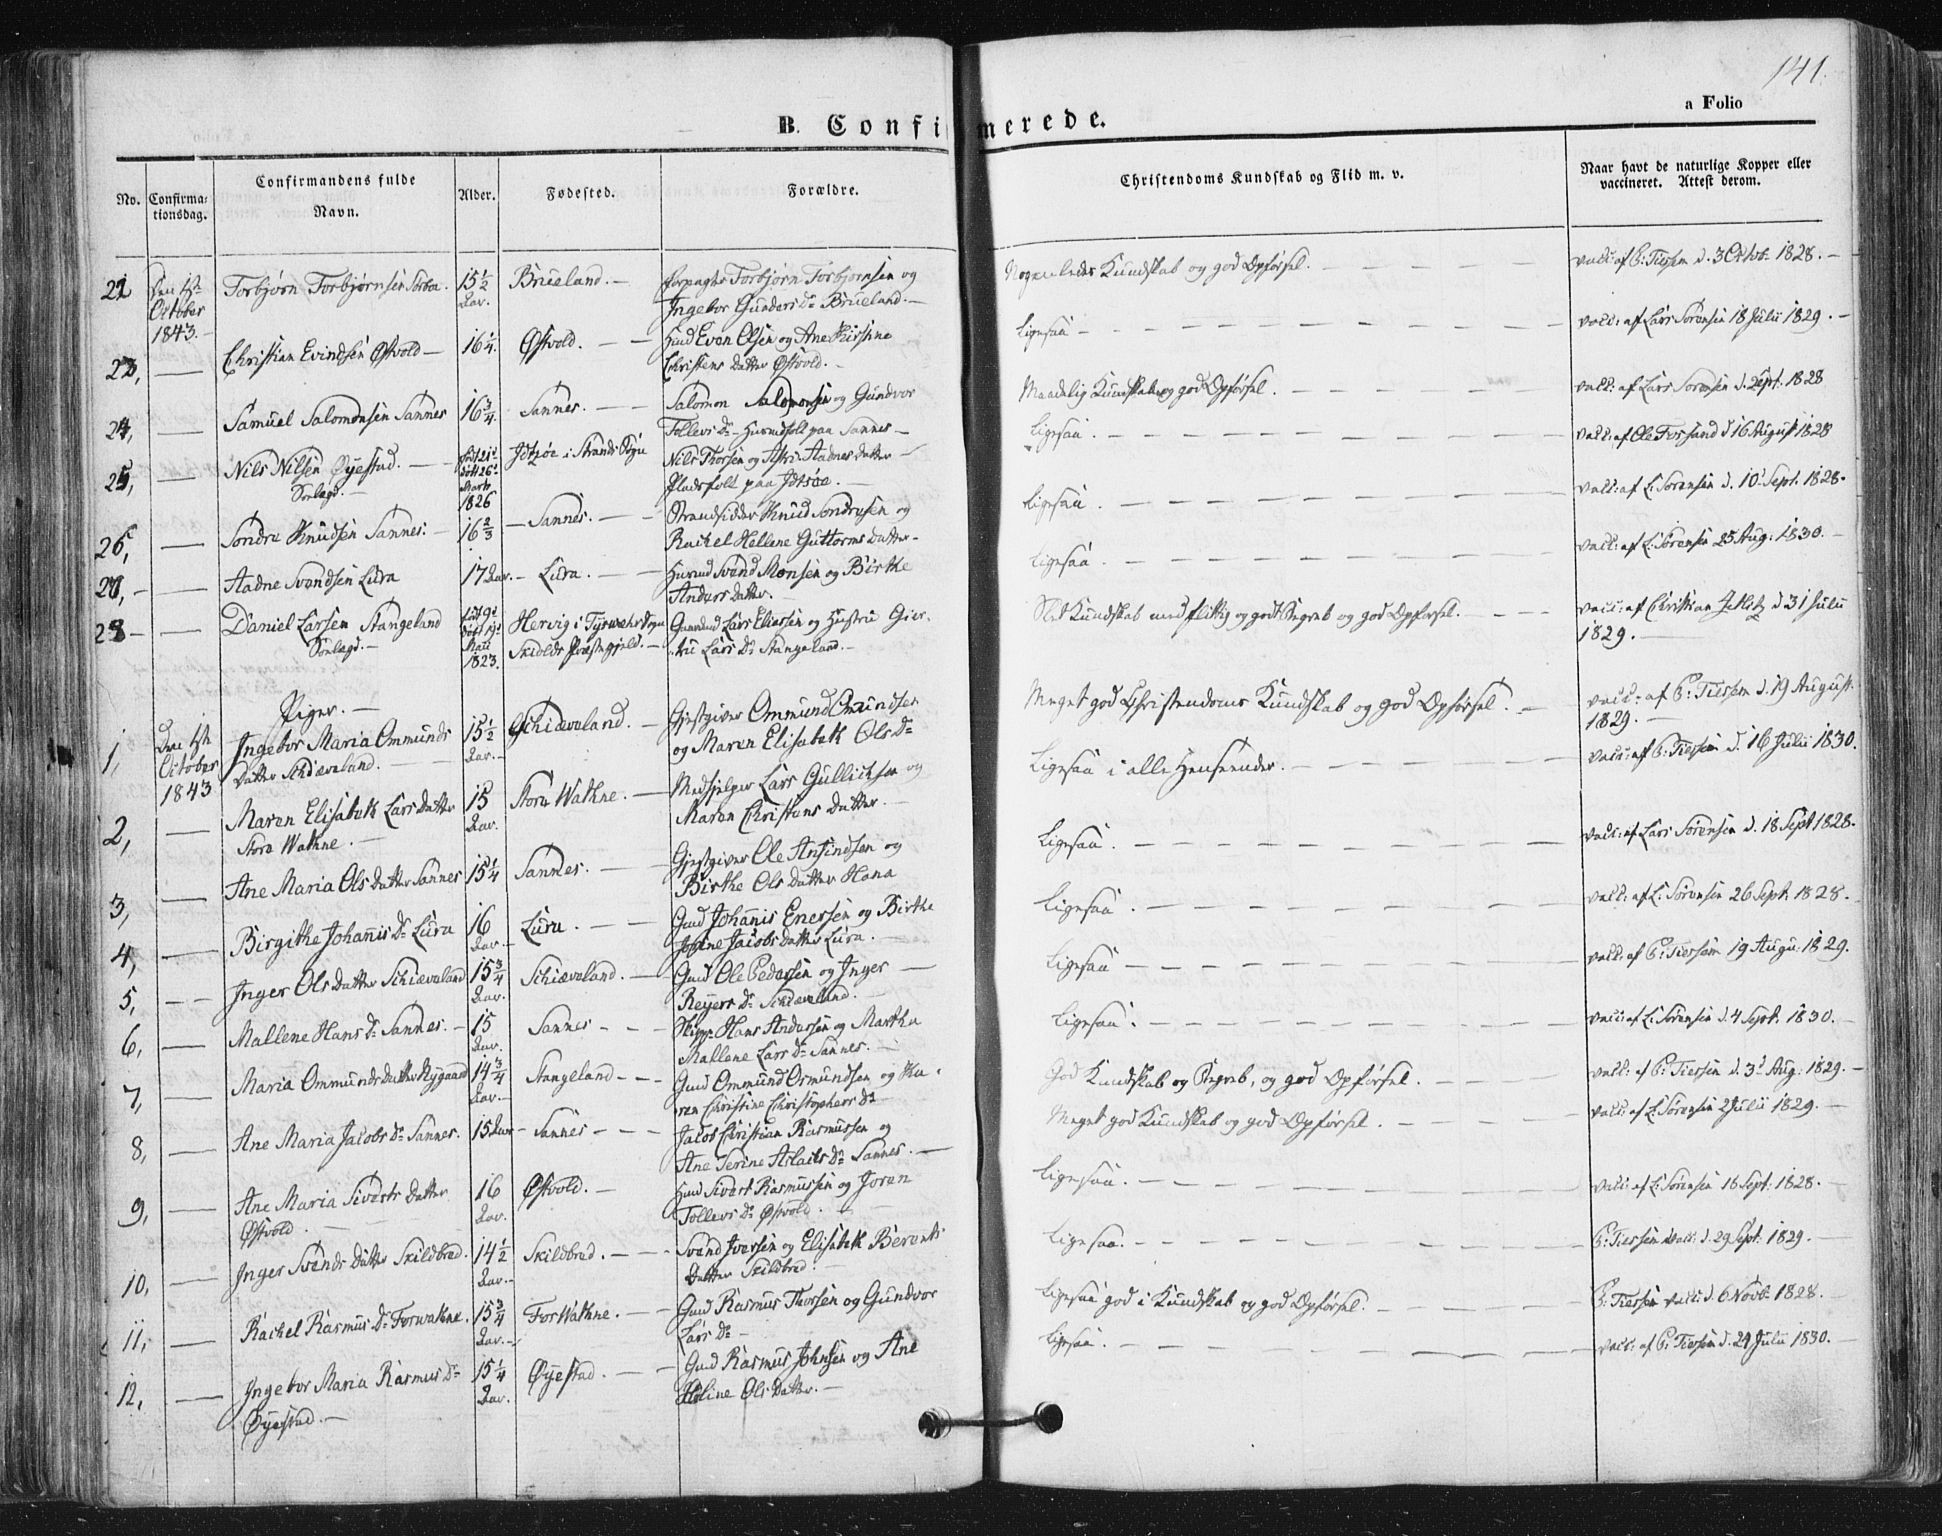 141.
a Folio
B. Confirmerede.
No.
Confirma-
tionsdag.
Confirmandens fulde
Navn.
Alder.
Fødested.
Forældre.
Christendoms Kundskab og Flid m. v.
Naar havt de naturlige Kopper eller
vaccineret. Attest derom.
October
1843.
Torbjørn Torbjørnsen
15 1/2
Aar.
Brueland. —
Torbjørn Torbjørnsen og
Ingebor Gunders Dr Brueland. —
Nogenledes Kundskab og god Opførsel. —
vacc: af P: Tiersen d. 3 Octob: 1828. —
Christian Evindsen Østvold —
16 1/4.
Østvold. — —
Huusmd Even Olsen og Ane Kirstine
Christens Datter Østvold. —
Ligesaa —
vacc: af Lars Sørensen 18 Julii 1829. —
24, —
Samuel Salomonsen Sannes
16 3/4.
Sannes. — —
Salomon Salomonsen og Gundvor
Tollevs Dr Huusmdfolk paa Sannes —
Maadelig Kundskab og god Opførsel. —
vacc: af Lars Sorensen d. Sept. 1828
25, —
Nils Nilsen Øyestad. —
Marts
1826
Idtzøe i Strands Sogn
Nils Thorsen og Astri Aadnes Datter —
Pladsfolk paa Idtsøe. —
Ligesaa. —
vacc: af Ole Forsand d 16 August 1828
26, —
Sondre Knudsen Sannes. —
16 2/3
— Sannes. — —
Strandsidder Knud Sondresen og
Rachel Hellene Guttorms Datter —
Ligesaa. —
vacc: af L: Sorensen d. 10d Sept. 1828.
27, —
Aadne Svendsen Lura
17 Aar.
— Lura. — —
Huusmd Svend Monsen og Birthe
Anders Datter.
Ligesaa. —
vacc: af L: Sørensen 25 Aug: 1830. —
28 —
Daniel Larsen Stangeland
Maii
1823.
Hervig i Tysvær Sogn
Skiolds Præstegjeld. —
Gaardmd Lars Eliassen og Hustru Gier-
tru Lars Dr Stangeland. —
Slet Kundskab med flittig og godt Begreb og god Opførsel. —
vacc: af Christian d 31 Julii
1829. —
Piger. —
1,
Den 1ste
October
1843
Ingebor Maria Ommunds
Datter Schiæveland. —
15 1/2
Aar. —
Schiæveland. —
Gjestgiver Ommund Omundsen
og Maren Elisabeth Ols Dr
Meget god Christendoms Kundskab og god Opførsel. —
vacc: af P: Tiersen d. 19 August.
1829. —
2, —
Maren Elisabeth Lars Datter
Store Wathne. —
15
Aar.
Store Wathne. —
Medhjelper Lars Gullichsen og
Maren Christens Datter. —
Ligesaa i alle Henseender. —
vacc: af P: Tiersen d. 16 Julii 1830.
3, —
Ane Maria Ols Datter Sannes
15 1/4
Sannes. —
Gjestgiver Ole Ansindsen og
Birthe Ols Datter Hana
Ligesaa. —
vacc: af Lars Sørensen d. 18 Sept 1828.
4, —
Birgithe Johannis Dr Lura
16
Aar. —
Lura. — —
Gmd Johanis Enersen og Birthe
Jacobs Datter Lura. —
Ligesaa. —
vacc: af L: Sørensen 26 Sept. 1828. —
5, — —
Inger Ols Datter Schiæveland
15 3/4
Aar.
Schiæveland. —
Gmd Ole Pedersen og Inger —
Reyers Dr Schiæveland. —
Ligesaa —
vacc: af P: Tiersen 19 Augu. 1829.
6, —
Mallene Hans Dr Sannes. —
15
Aar.
Sannes — —
Skipp: Hans Andersen og Martha
Mallene Lars Dr Sannes. —
Ligesaa. —
vacc: af L: Sørensen d. 4 Sept. 1830. —
7, —
Maria Ommunds Datter Nygaard
14 3/4
Aar. —
Stangeland — —
Gmd Ommund Osmundsen og Ka-
ren Christine Christophers Dr
God Kundskab og Begreb, og god Opførsel. —
vacc: af P: Tiersen d. 3d Aug: 1829. —
8, —
Ane Maria Jacobs Dr Sannes.
15 Aar
— Sannes — —
Jacob Christian Rasmussen og
Ane Serine Aslachs Dr Sannes. —
Meget god Kundskab og god Opførsel. —
vacc: af L: Sørensen 2 Julii 1829. —
9, —
Ane Maria Siverts Datter
Østvold. —
16
Aar.
Østvold. —
Huusmd Sivert Rasmussen og Joren
Tollevs Dr Østvold. —
Ligesaa. —
vacc: af L: Sørensen 18 Sept: 1828. —
10, —
Inger Svends Datter Skildbred.
14 1/2
Aar. —
Skildbred. — —
Svend Iversen og Elisabeth Berents
Datter Skildbred. —
Ligesaa. —
P: Tiersen vacc: d. 29 Sept: 1829. —
11, —
Rachel Rasmus Dr Forwathne.
15 3/4
Aar. —
For Wathne. —
Gmd Rasmus Thorsen og Gundvor
Lars Dr —
Ligesaa god i Kundskab og god Opførsel. —
P: Tiersen vacc: d. 6 Novb: 1828. —
12, —
Ingebor Maria Rasmus Dr
Øyestad. —
15 1/4
Aar.
Øyestad. —
Gmd Rasmus Johnsen og Ane
Heline Ols Datter. —
Ligesaa. —
vacc: af P: Tiersen d. 24 Julii 1830. —